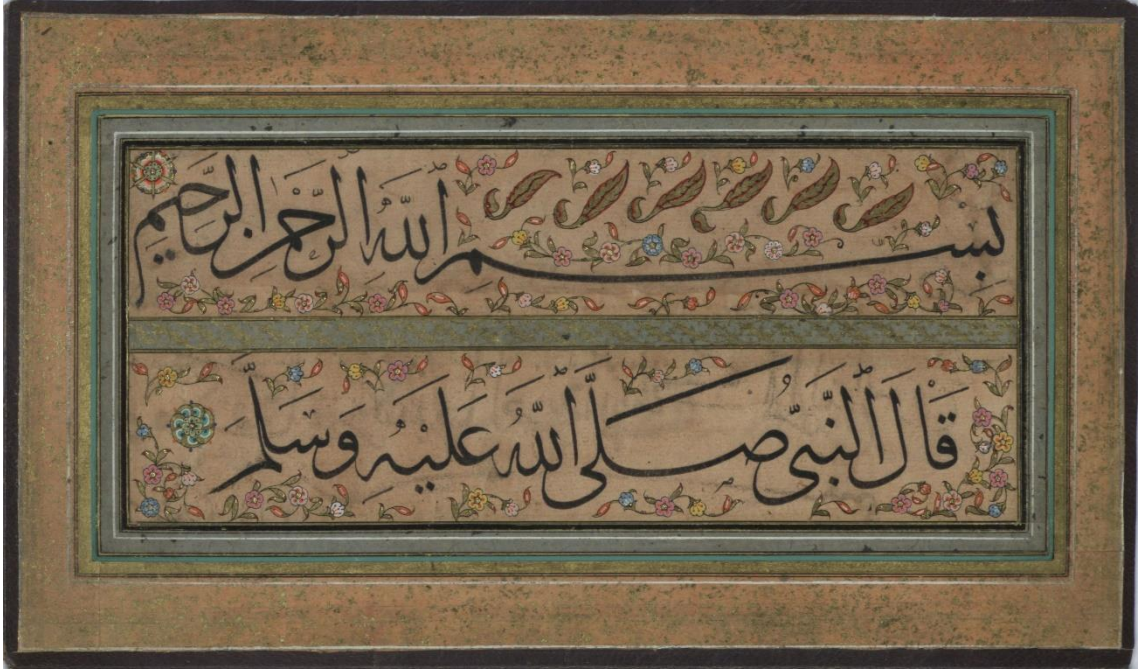 بسم الله الرحمن الرحيم
قَالَ النَّبِىُّ صَلَّى اللّٰهُ عَلَيْهِ وَسَلَّمَ